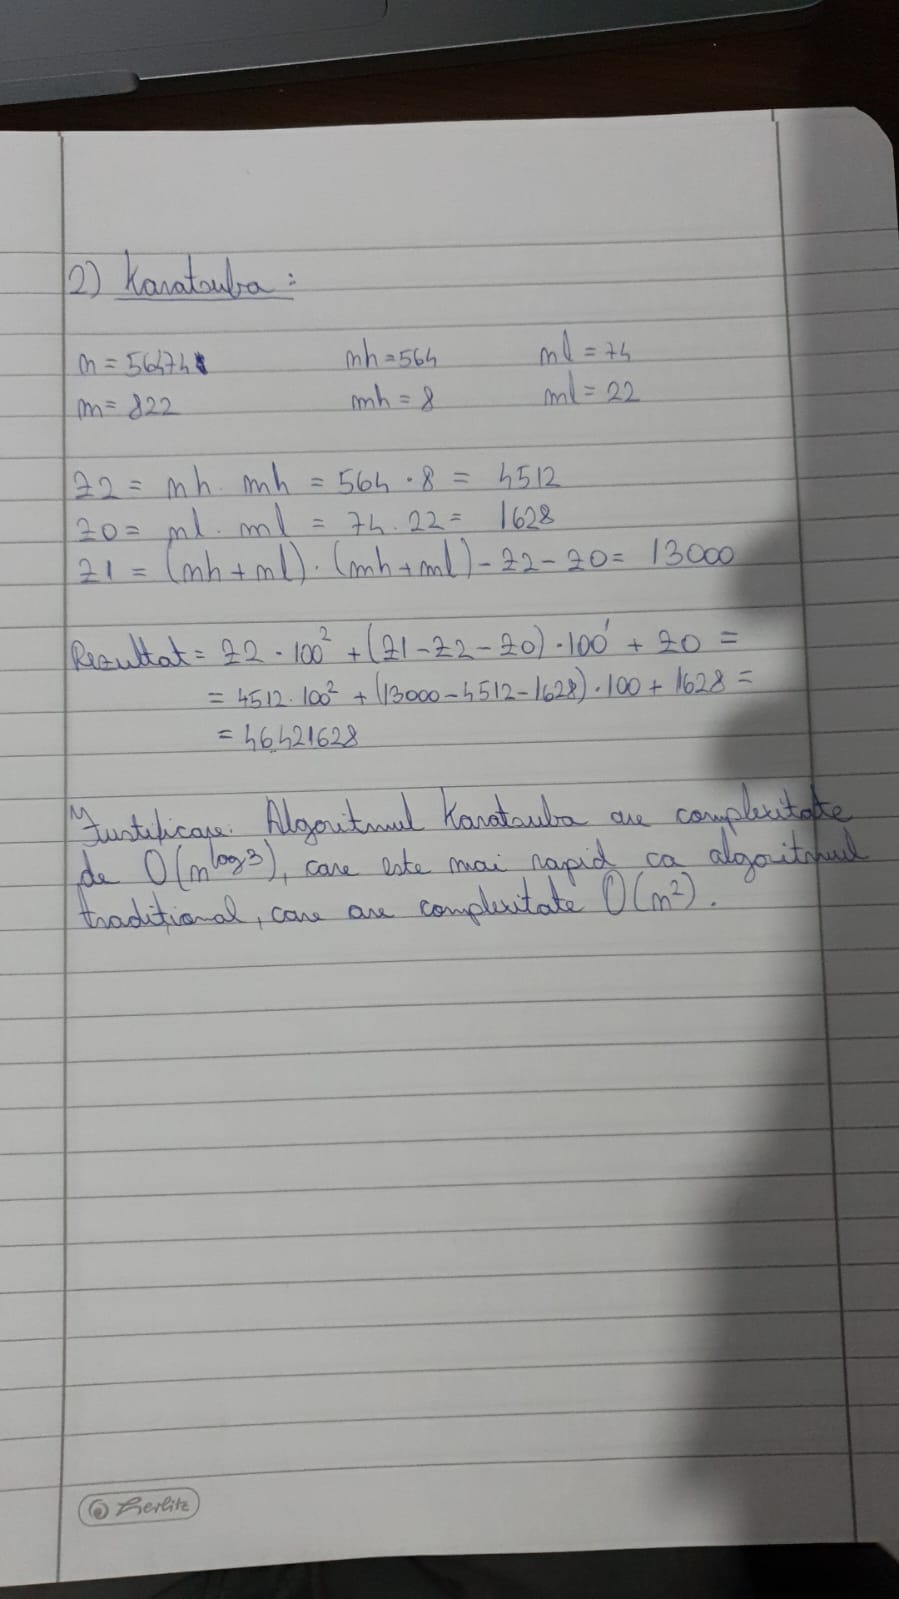 2) Karatsuba:
n = 56474 nh = 564 nl = 74
m = 822 mh = 8 ml = 22
z2 = nh · mh = 564 · 8 = 4512
z0 = nl · ml = 74 · 22 = 1628
z1 = (nh + nl) · (mh + ml) - z2 - z0 = 13000
Rezultat = z2 · 100² + (z1 - z2 - z0) · 100¹ + z0 =
= 4512 · 100² + (13000 - 4512 - 1628) · 100 + 1628 =
= 46421628
Justificare: Algoritmul Karatsuba are complexitate
de O(n^log3), care este mai rapid ca algoritmul
tradițional, care are complexitate O(n²).
Herlitz